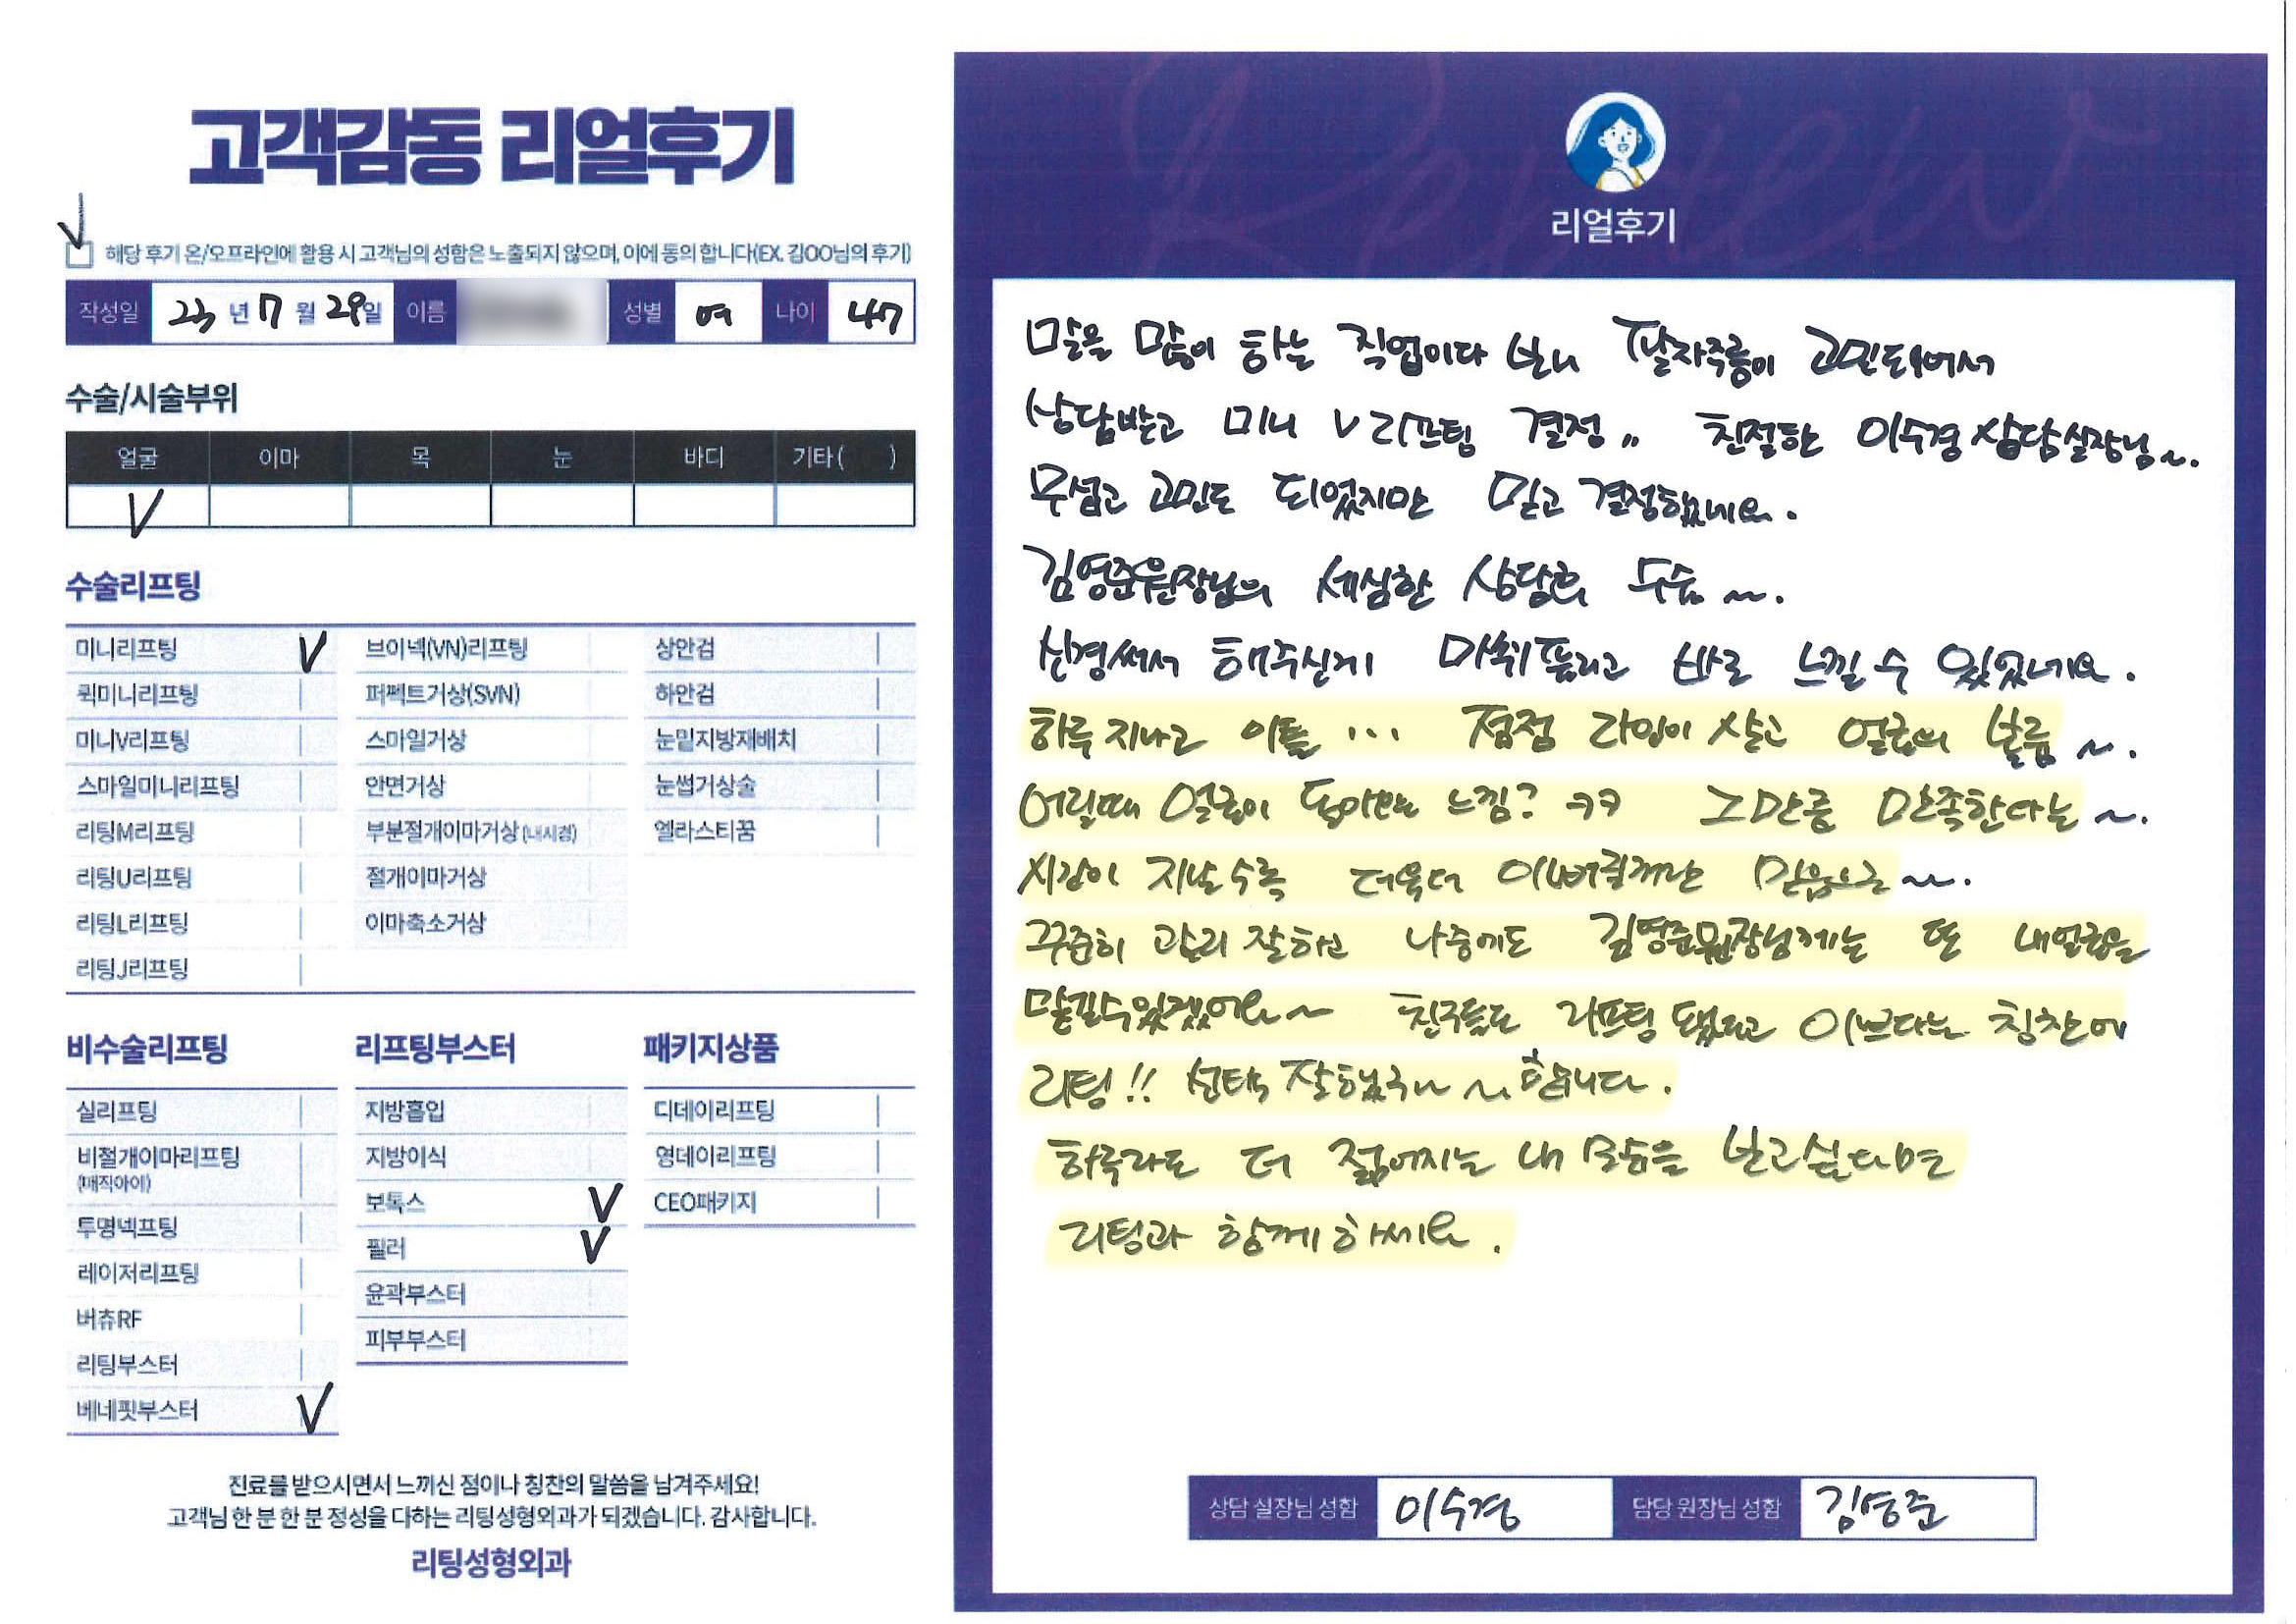 고객감동 리얼후기
해당 후기 온/오프라인에 활용 시 고객님의 성함은 노출되지 않으며, 이에 동의 합니다(EX. 김OO님의 후기)
작성일 23년 7월 29일 이름 성별 여 나이 47
수술/시술부위
얼굴 이마 목 눈 바디 기타( )
V
수술리프팅
미니리프팅 V 브이넥(VN)리프팅 상안검
퀵미니리프팅 퍼펙트거상(SVN) 하안검
미니V리프팅 스마일거상 눈밑지방재배치
스마일미니리프팅 안면거상 눈썹거상술
리팅M리프팅 부분절개이마거상(내시경) 엘라스티꿈
리팅U리프팅 절개이마거상
리팅L리프팅 이마축소거상
리팅J리프팅
비수술리프팅 리프팅부스터 패키지상품
실리프팅 지방흡입 디데이리프팅
비절개이마리프팅 지방이식 영데이리프팅
(매직아이)
보톡스 V CEO패키지
투명넥프팅 필러 V
레이저리프팅 윤곽부스터
버츄RF 피부부스터
리팅부스터
베네핏부스터 V
진료를 받으시면서 느끼신 점이나 칭찬의 말씀을 남겨주세요!
고객님 한 분 한 분 정성을 다하는 리팅성형외과가 되겠습니다. 감사합니다.
리팅성형외과
Review
리얼후기
말을 많이 하는 직업이다 보니 팔자주름이 고민되어서
상담받고 미니 V 리프팅 결정,, 친절한 이수경 상담실장님~.
무섭고 고민도 되었지만 믿고 결정했네요.
김영준원장님의 세심한 상담후 수술~.
신경써서 해주신게 마취풀리고 바로 느낄 수 있었네요.
하루 지나고 이틀 ... 점점 라인이 살고 얼굴의 볼륨~.
어릴때 얼굴이 돌아왔는 느낌? ㅋㅋ 그만큼 만족한다는~.
시간이 지날수록 더욱더 이뻐질꺼란 믿음으로~.
꾸준히 관리 잘하고 나중에도 김영준원장님께는 또 내얼굴을
맡길수있겠어요~ 친구들도 리프팅 됐다고 이쁘다는 칭찬에
리팅!! 선택 잘했구나~ 합니다.
하루라도 더 젊어지는 내 모습을 보고싶다면
리팅과 함께하세요.
상담 실장님 성함 이수경 담당 원장님 성함 김영준